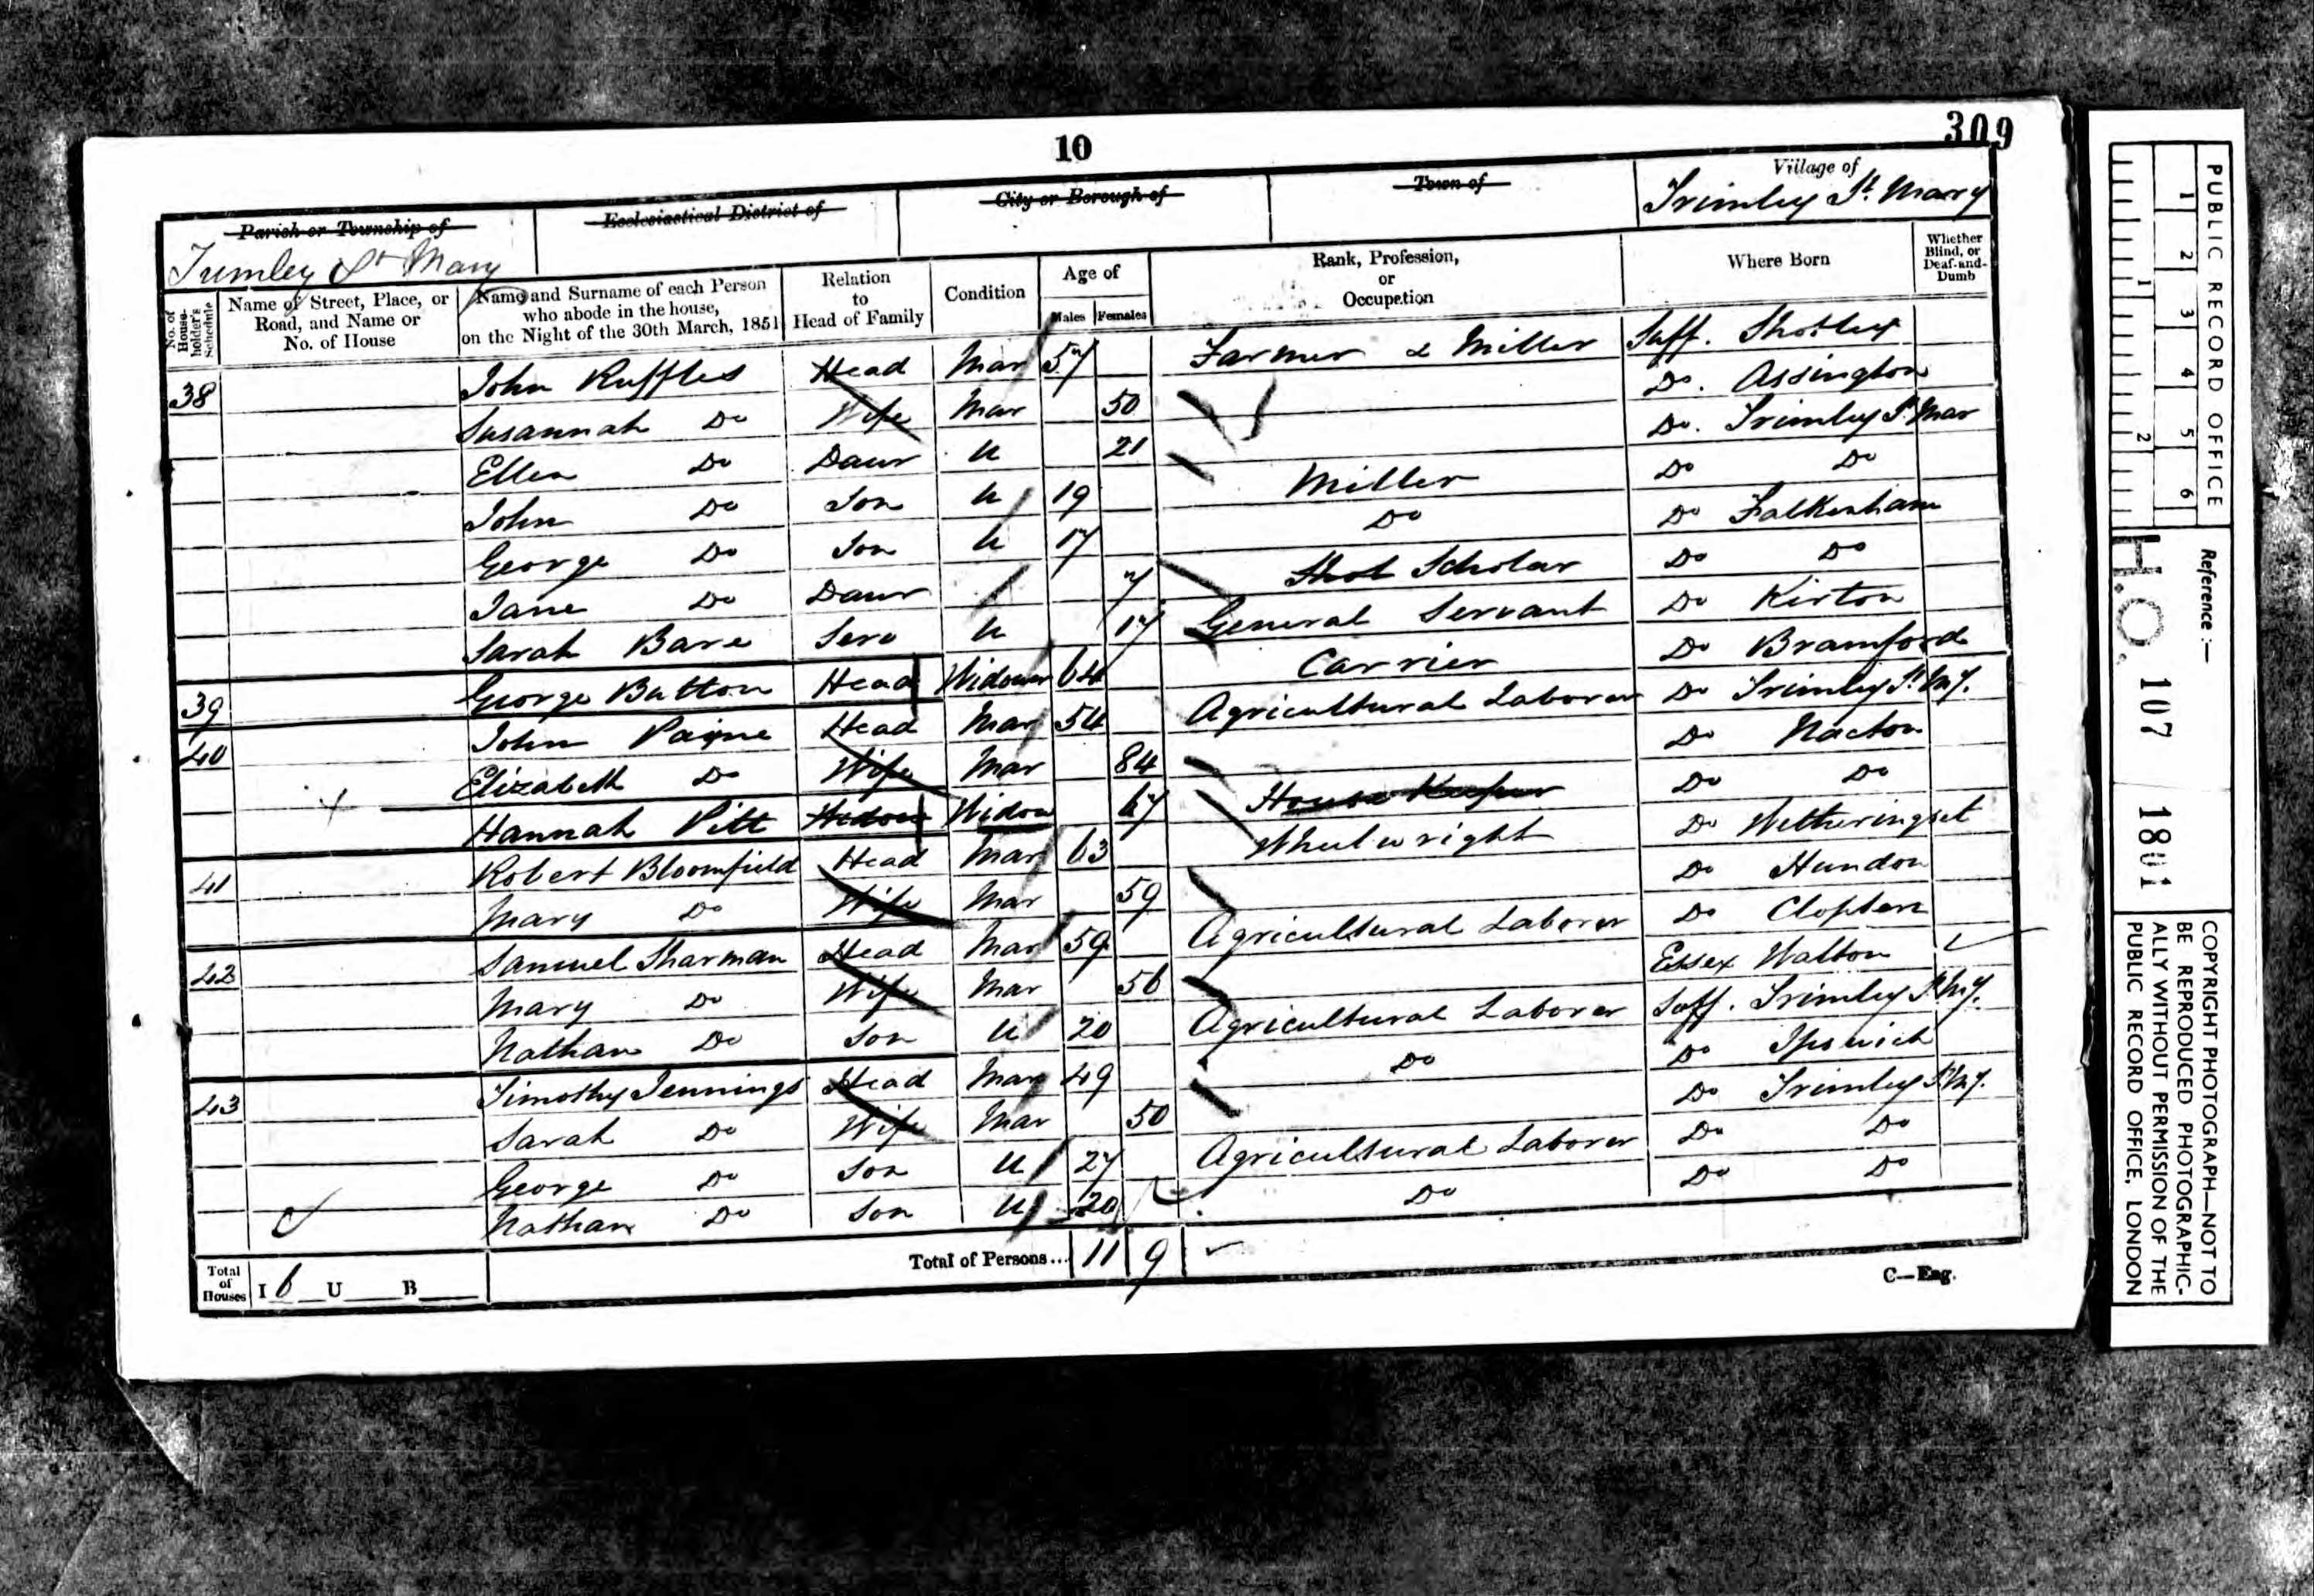 10
309
Parish or Township of
Ecclesiastical District of
City or Borough of
Town of
Village of
Trimley St Mary
Trimley St. Mary
No. of House-holder's Schedule
Name of Street, Place, or Road, and Name or No. of House
Name and Surname of each Person who abode in the house, on the Night of the 30th March, 1851
Relation to Head of Family
Condition
Age of
Males Females
Rank, Profession, or Occupation
Where Born
Whether Blind, or Deaf-and-Dumb
38 John Ruffles Head Mar 57 Farmer & Miller Suff. Shotley
Susannah Do Wife Mar 50 Do. Assington
Ellen Do Daur U 21 Do. Trimley St. Mar
John Do Son U 19 Miller Do Do
George Do Son U 17 Do Do Falkenham
Jane Do Daur 7 Scholar Do Do
Sarah Bare Serv U 17 General Servant Do Kirton
39 George Button Head Widower 64 Carrier Do Bramford
40 John Paine Head Mar 54 Agricultural Laborer Do Trimley St. My.
Elizabeth Do Wife Mar 84 Do Nacton
Hannah Pitt Widow Widow 67 House Keeper Do Do
41 Robert Bloomfield Head Mar 63 Wheelwright Do Wetheringset
Mary Do Wife Mar 59 Do Hundon
42 Samuel Sharman Head Mar 59 Agricultural Laborer Do Clopton
Mary Do Wife Mar 56 Essex Walton
Nathan Do Son U 20 Agricultural Laborer Suff. Trimley St. My.
43 Timothy Jennings Head Mar 49 Do Do Ipswich
Sarah Do Wife Mar 50 Do Trimley St. My.
George Do Son U 27 Agricultural Laborer Do Do
Nathan Do Son U 20 Do Do Do
Total of Houses I 6 U B
Total of Persons... 11 9
C—Eng.
PUBLIC RECORD OFFICE
1 2 3 4 5 6
1 2
Reference :—
H.O. 107 1801
COPYRIGHT PHOTOGRAPH—NOT TO
BE REPRODUCED PHOTOGRAPHIC-
ALLY WITHOUT PERMISSION OF THE
PUBLIC RECORD OFFICE, LONDON